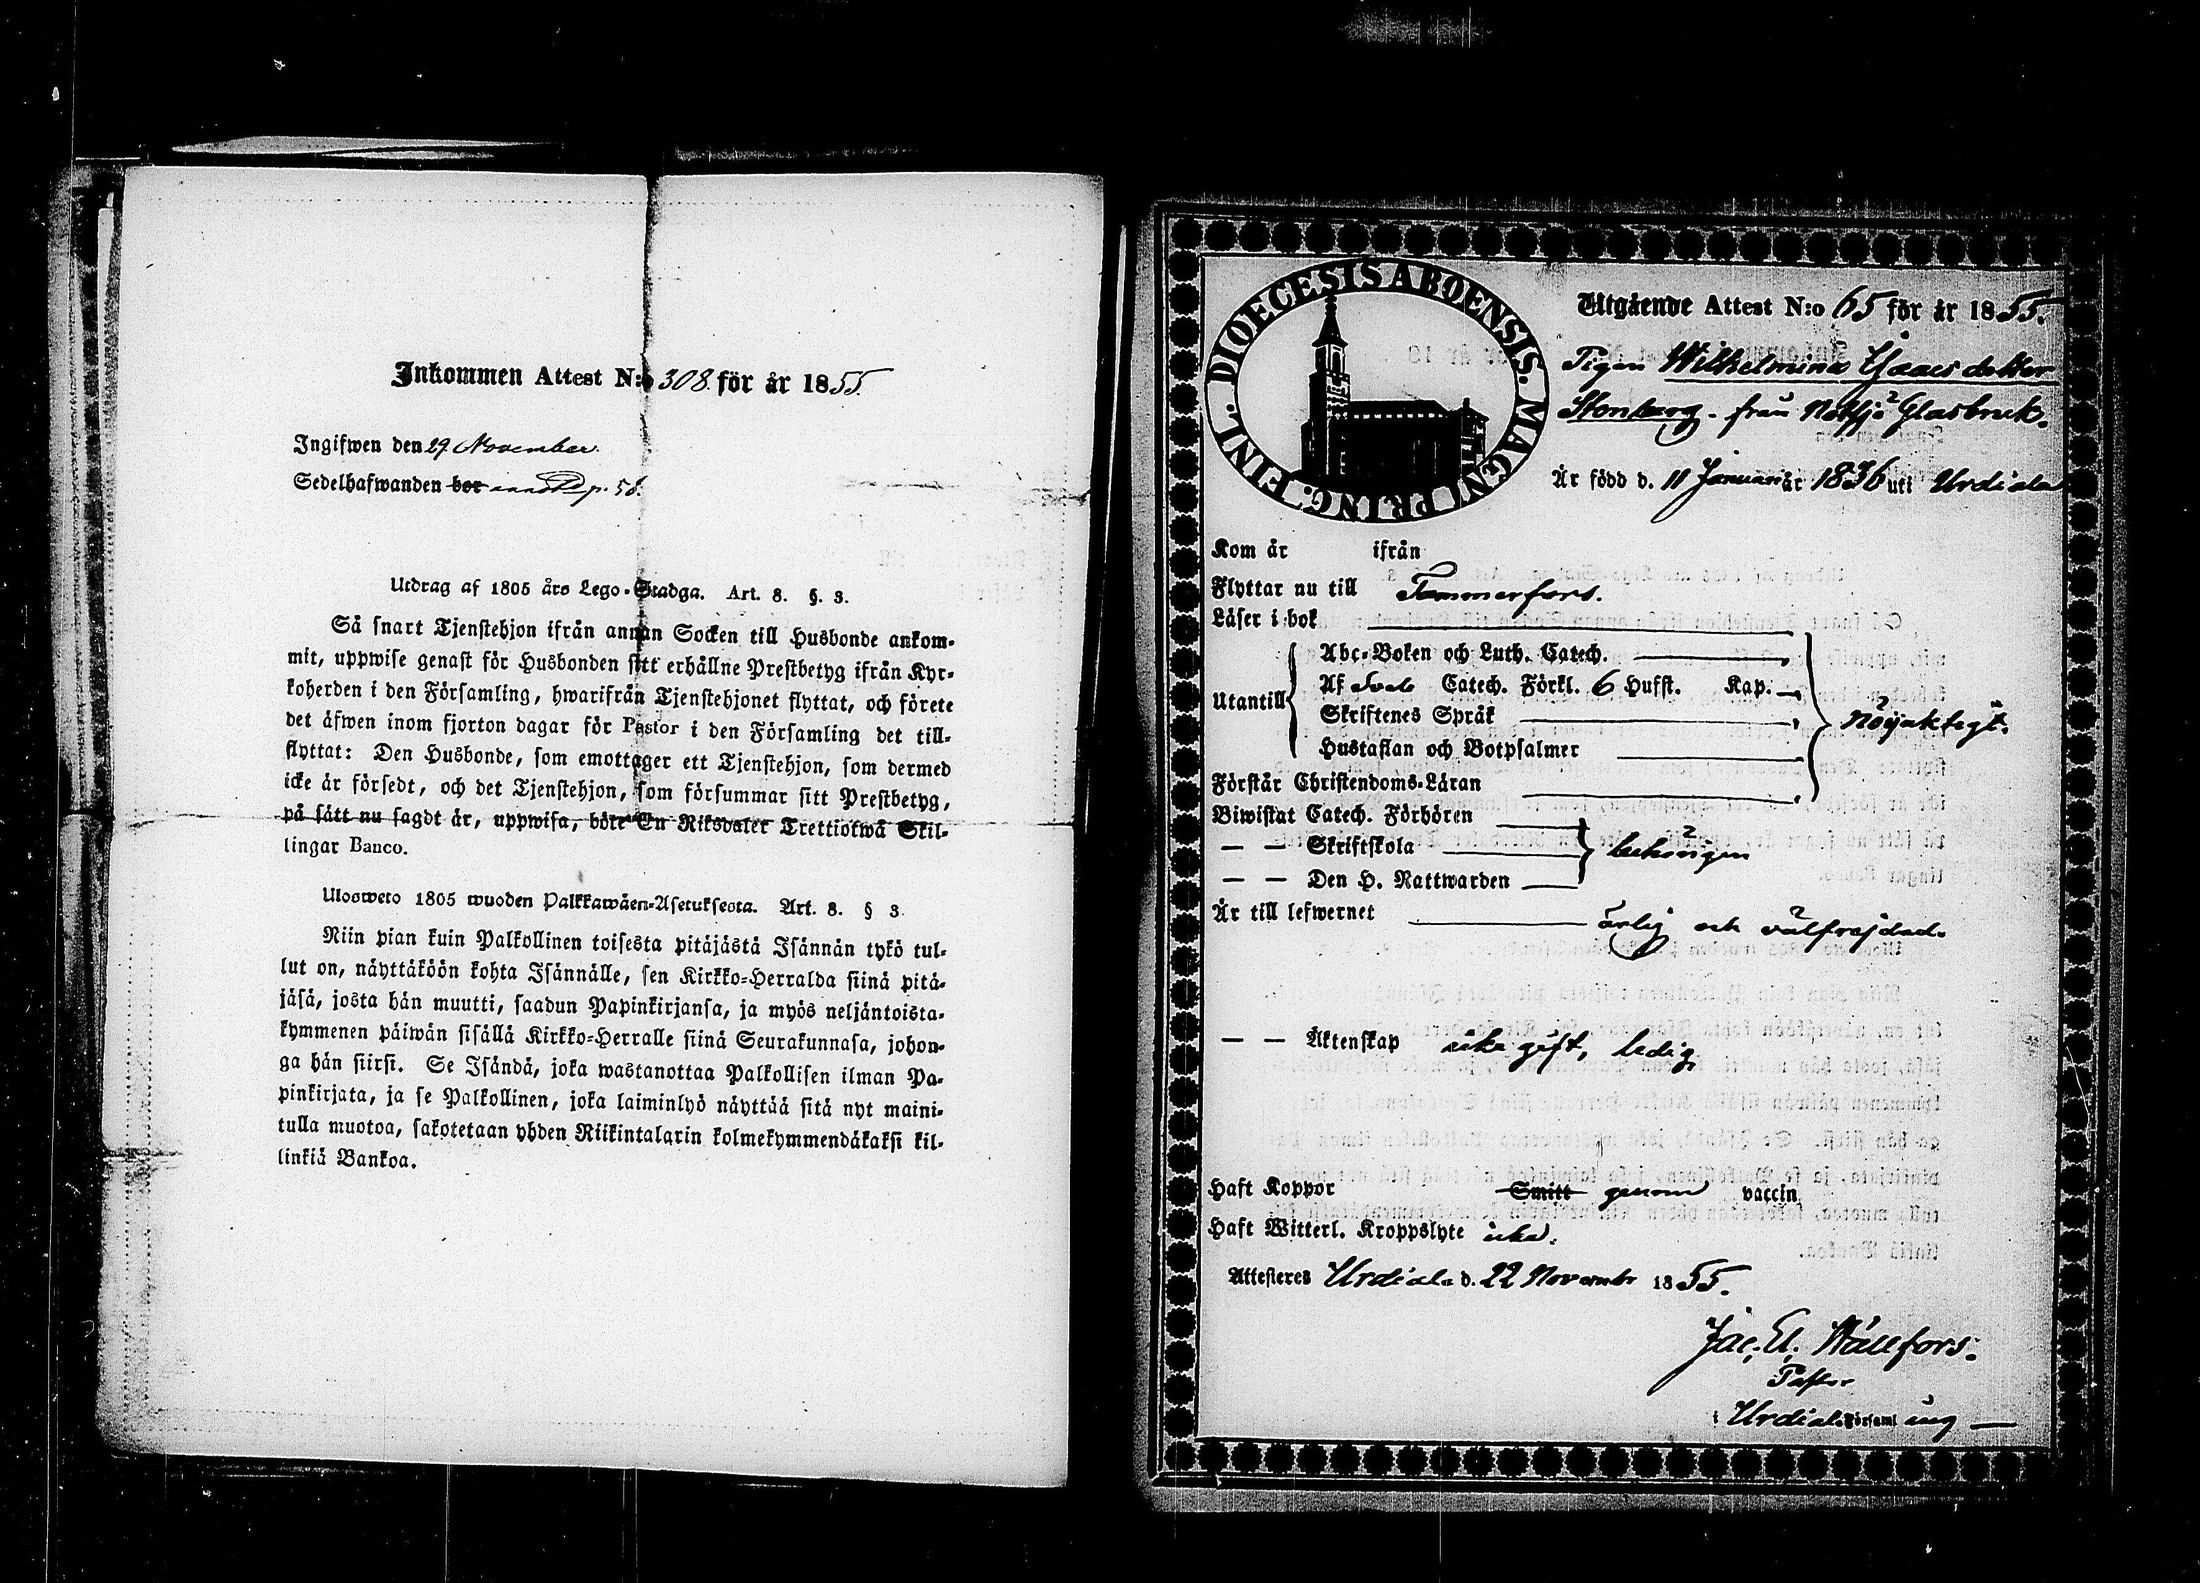 Inkommen Attest N:o 308. för år 1855.
Ingifwen den 29 November.
Sedelhafwanden bor p. 58.
Utdrag af 1805 års Lego-Stadga. Art. 8. §. 3.
Så snart Tjenstehjon ifrån annan Socken till Husbonde ankom-
mit, uppwise genast för Husbonden sitt erhållne Prestbetyg ifrån Kyr-
koherden i den Församling, hwarifrån Tjenstehjonet flyttat, och förete
det äfwen inom fjorton dagar för Pastor i den Församling det till-
flyttat: Den Husbonde, som emottager ett Tjenstehjon, som dermed
icke är försedt, och det Tjenstehjon, som försummar sitt Prestbetyg,
på sätt nu sagdt är, uppwisa, böte En Riksdaler Trettiotwå Skil-
lingar Banco.
Ulosweto 1805 wuoden Palkkawäen-Asetuksesta. Art. 8. § 3.
Niin pian kuin Palkollinen toisesta pitäjästä Isännän tykö tul-
lut on, näyttäköön kohta Isännälle, sen Kirkko-Herralda siinä pitä-
jäsä, josta hän muutti, saadun Papinkirjansa, ja myös neljäntoista-
kymmenen päiwän sisällä Kirkko-Herralle siinä Seurakunnasa, johon-
ga hän siirsi. Se Isändä, joka wastanottaa Palkollisen ilman Pa-
pinkirjata, ja se Palkollinen, joka laiminlyö näyttää sitä nyt maini-
tulla muotoa, sakotetaan yhden Riikintalarin kolmekymmendäkaksi kil-
linkiä Bankoa.
DIOECESIS ABOENSIS. MAGNI PRINC. FINL.
Utgående Attest N:o 65 för år 1855.
Pigan Wilhelmina Isaacsdotter
Stenberg. från Notsjö Glasbruk.
Är född d. 11 Januari år 1836 uti Urdiala
Kom år ifrån
Flyttar nu till Tammerfors.
Läser i bok
Utantill
Abc-Boken och Luth. Catech.
Af Sveb Catech. Förkl. 6 Hufst. Kap.
Skriftenes Språk
Hustaflan och Botpsalmer
Förstår Christendoms-Läran
nöijaktegt.
Biwistat Catech. Förhören
— — Skriftskola
— — Den H. Nattwarden
behörigen
Är till lefwernet ärlig och välfräjdad.
— — Äktenskap icke gift, ledig
Haft Koppor Smitt genom vaccin
Haft Witterl. Kroppslyte icke.
Attesteres Urdiala d. 22 Novembr 1855.
Jac. El. Wallfors.
Pastor
i Urdiala Församl ing